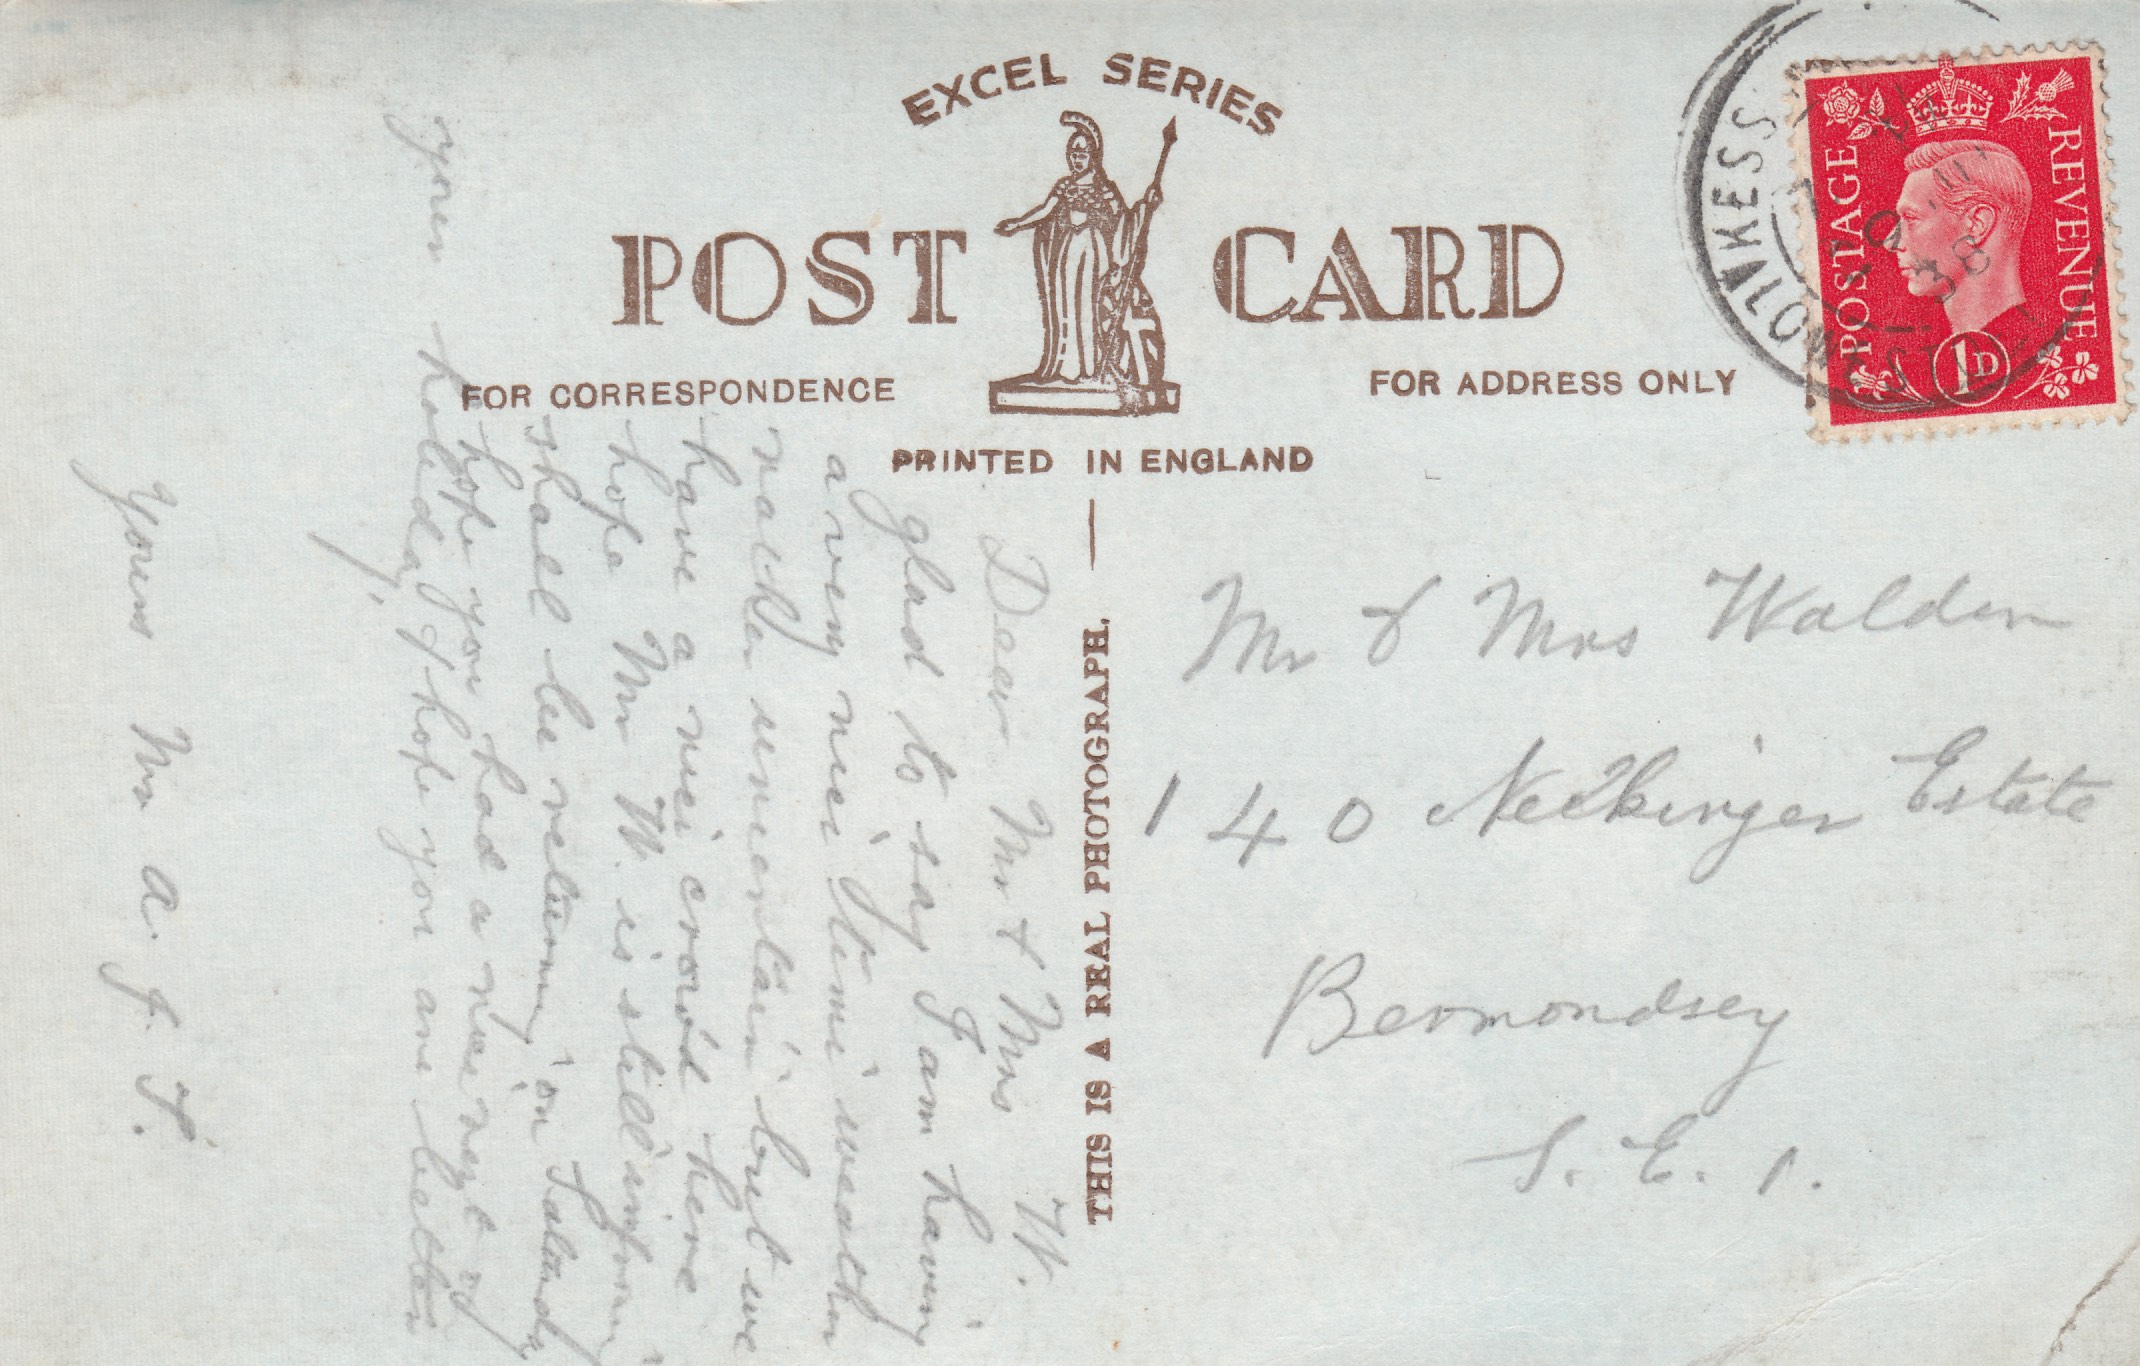 EXCEL SERIES
POST CARD
FOR CORRESPONDENCE
FOR ADDRESS ONLY
PRINTED IN ENGLAND
THIS IS A REAL PHOTOGRAPH.
POSTAGE
REVENUE
1D
FOLKESTONE
38
Mr & Mrs Walden
140 Neckinger Estate
Bermondsey
S. E. 1.
Dear Mr & Mrs W.
glad to say I am having
a very nice time weather
rather uncertain but we
have a nice crowd here
hope Mr W. is still improving
shall be returning on Saturday
hope you had a nice rest of
your holiday & hope you are better
Yours Mr A. J. T.